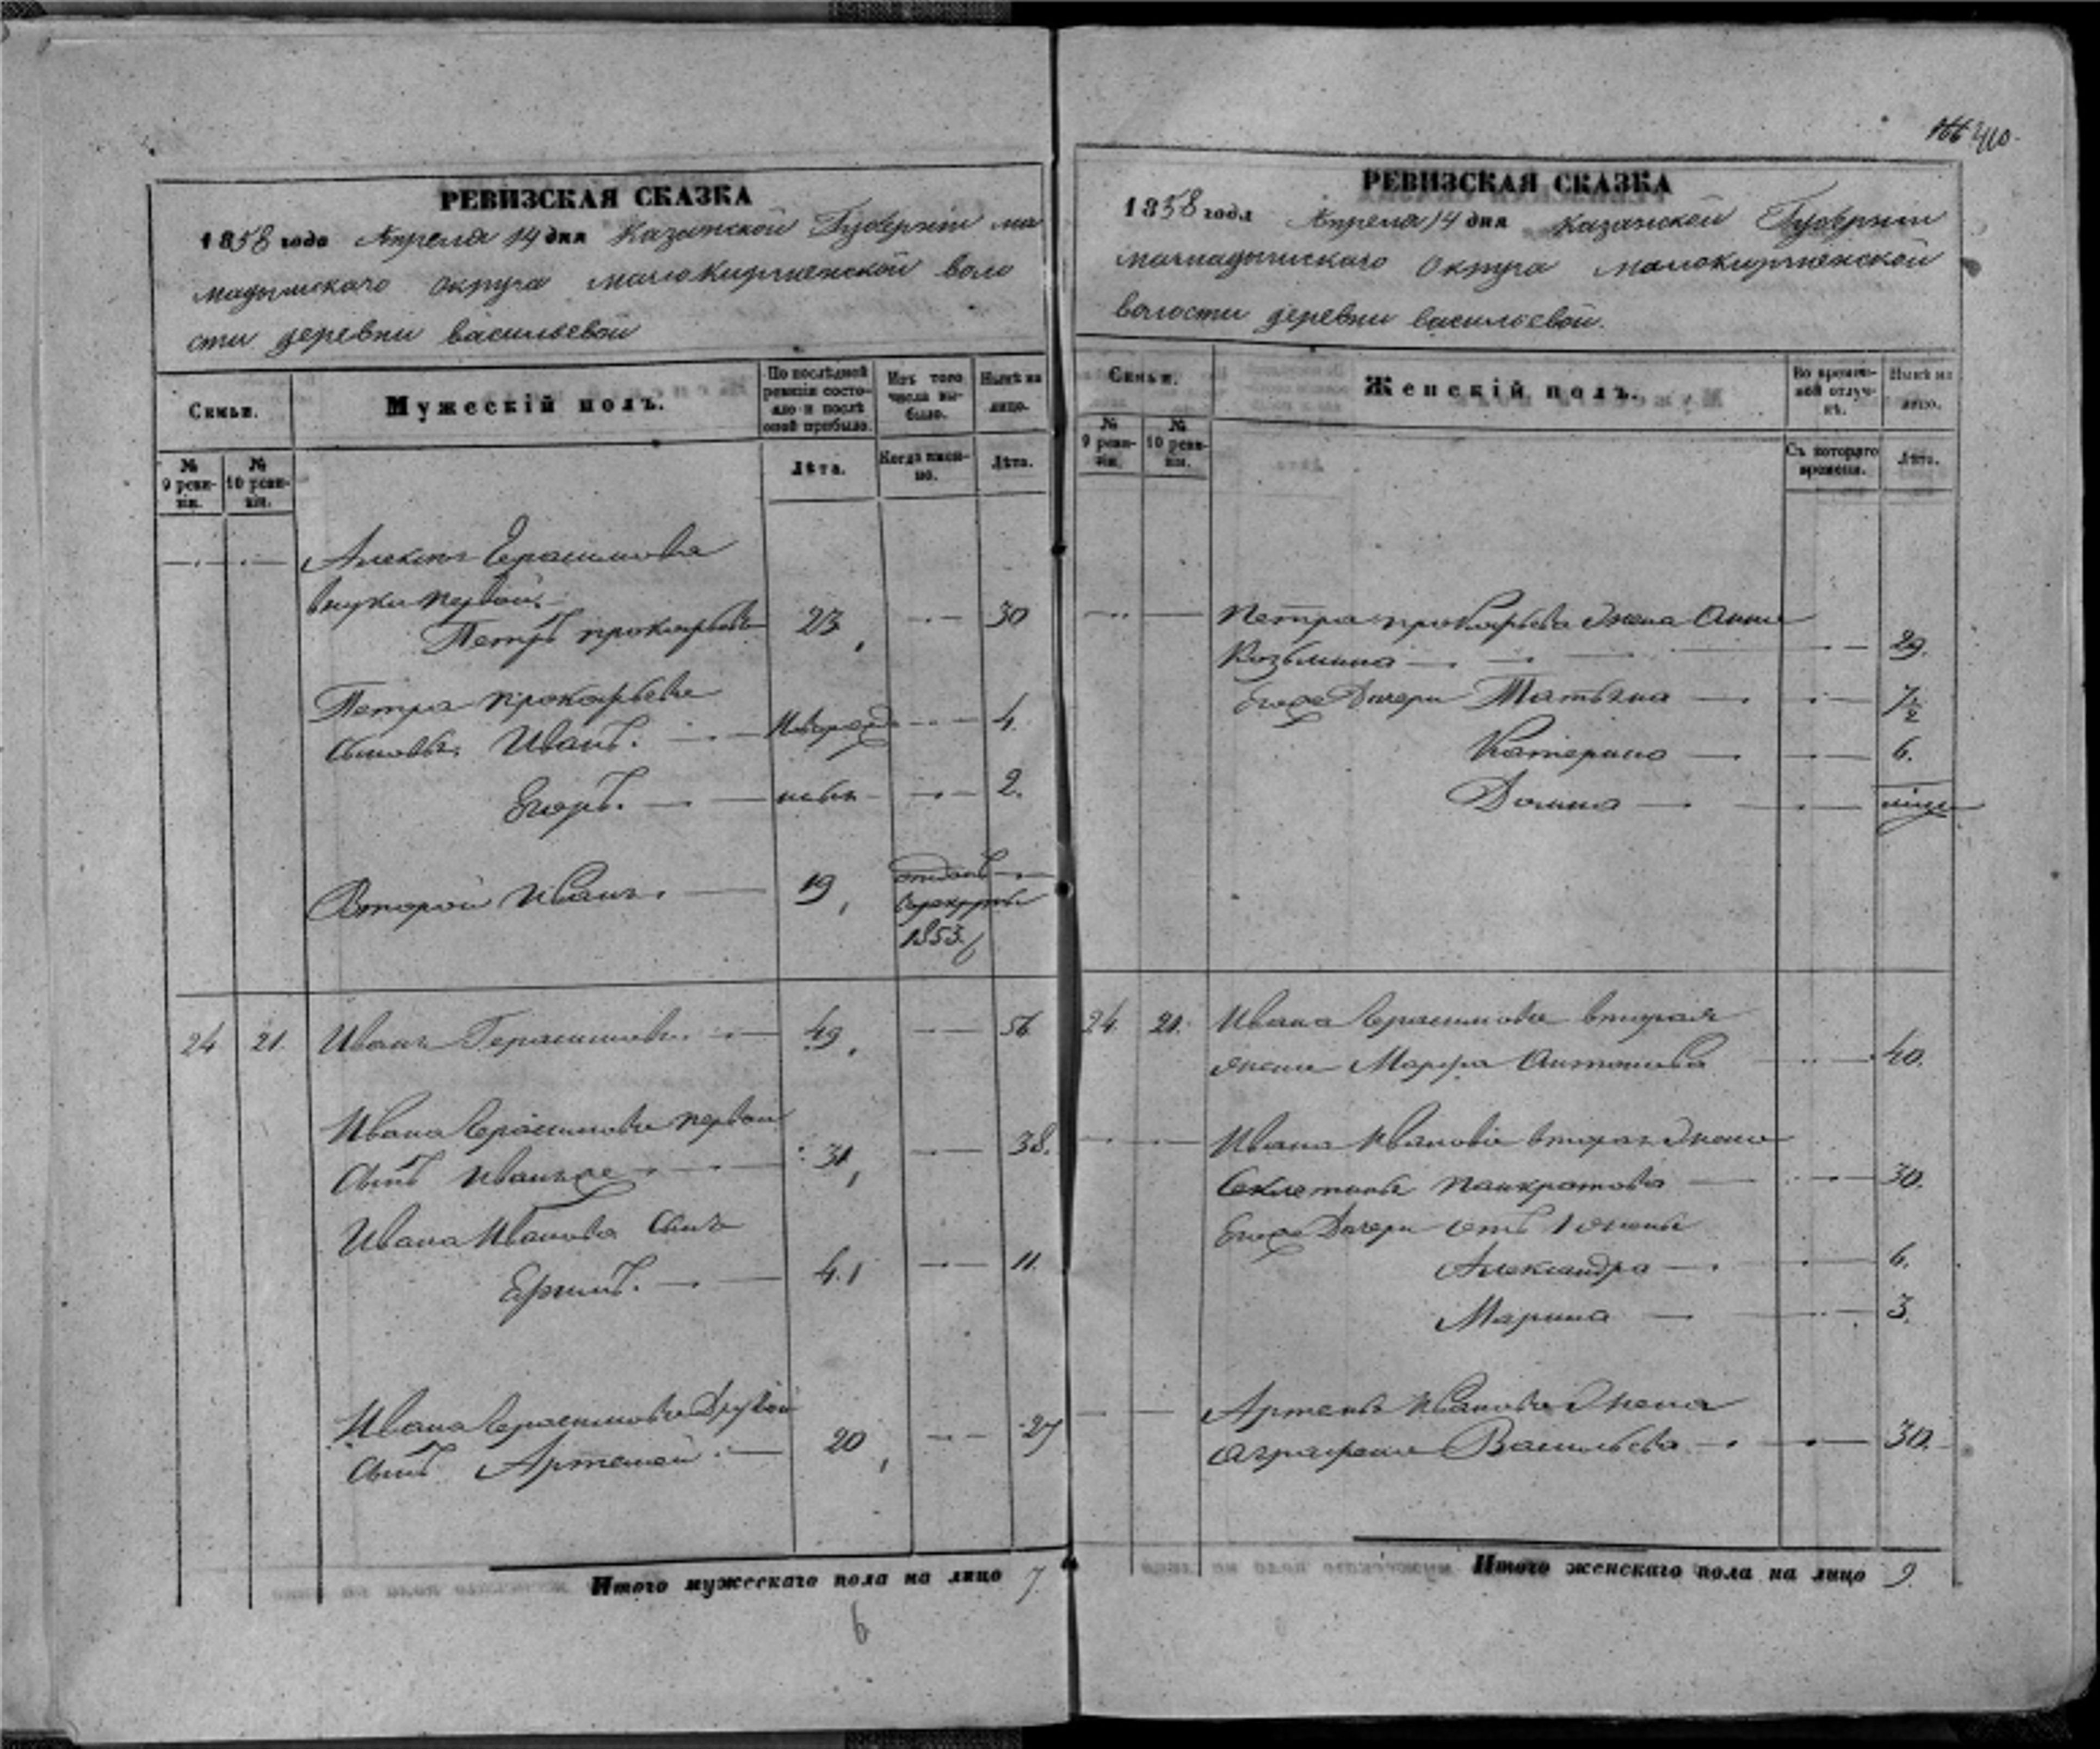 РЕВИЗСКАЯ СКАЗКА
1858 года Апреля 14 дня Казанской Губернiи ма
мадышскаго Округа малокирменской воло
сти деревни васильевой
Семьи.
Мужескiй полъ.
По послѣдней ревизiи состояло и послѣ оной прибыло.
Изъ того числа выбыло.
Нынѣ на лицо.
№ 9 ревизiи.
№ 10 ревизiи.
Лѣта.
Когда именно.
Лѣта.
Алексѣя Герасимова
внуки первой.
Петръ прокофьевъ 23 30
Петра прокофьева
Сыновья Иванъ. Новорожд 4.
Егоръ. 2.
Второй Иванъ. 19 отданъ
врекруты
1853
24 21. Иванъ Герасимовъ. 49 56
Ивана Герасимова первой
Сынъ Иванъже 31 38.
Ивана Иванова Сынъ
4.1 11.
Ивана Герасимова Другой
Сынъ Артемей 20 27
Итого мужескаго пола на лицо 7.
6
410.
РЕВИЗСКАЯ СКАЗКА
1858 года Апреля 14 дня Казанской Губернiи
мамадышскаго Округа малокирменской
волости деревни васильевой.
Семьи.
Женскiй полъ.
Во временной отлучкѣ.
Нынѣ на лицо.
№ 9 ревизiи.
№ 10 ревизiи.
Съ котораго времени.
Лѣта.
Петра прокофьева Жена Анна
Козьмина 29.
Егоже Дочери Татьяна 7½
Катерина 6.
24. 21. Ивана Герасимова вторая
жена Марфа Антонова 40.
Ивана Иванова вторая Жена
Секлетинья Панкратова 30.
Егоже Дочери отъ 1 жены
Александра 6.
Марина 3.
Артемья Иванова Жена
Аграфена Васильева 30.
Итого женскаго пола на лицо 9.